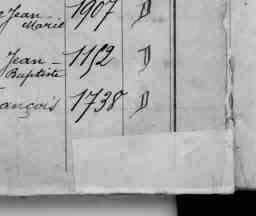 Jean- 1907 D
Marie
Jean- 1152 D
Baptiste
ançois 1738 D